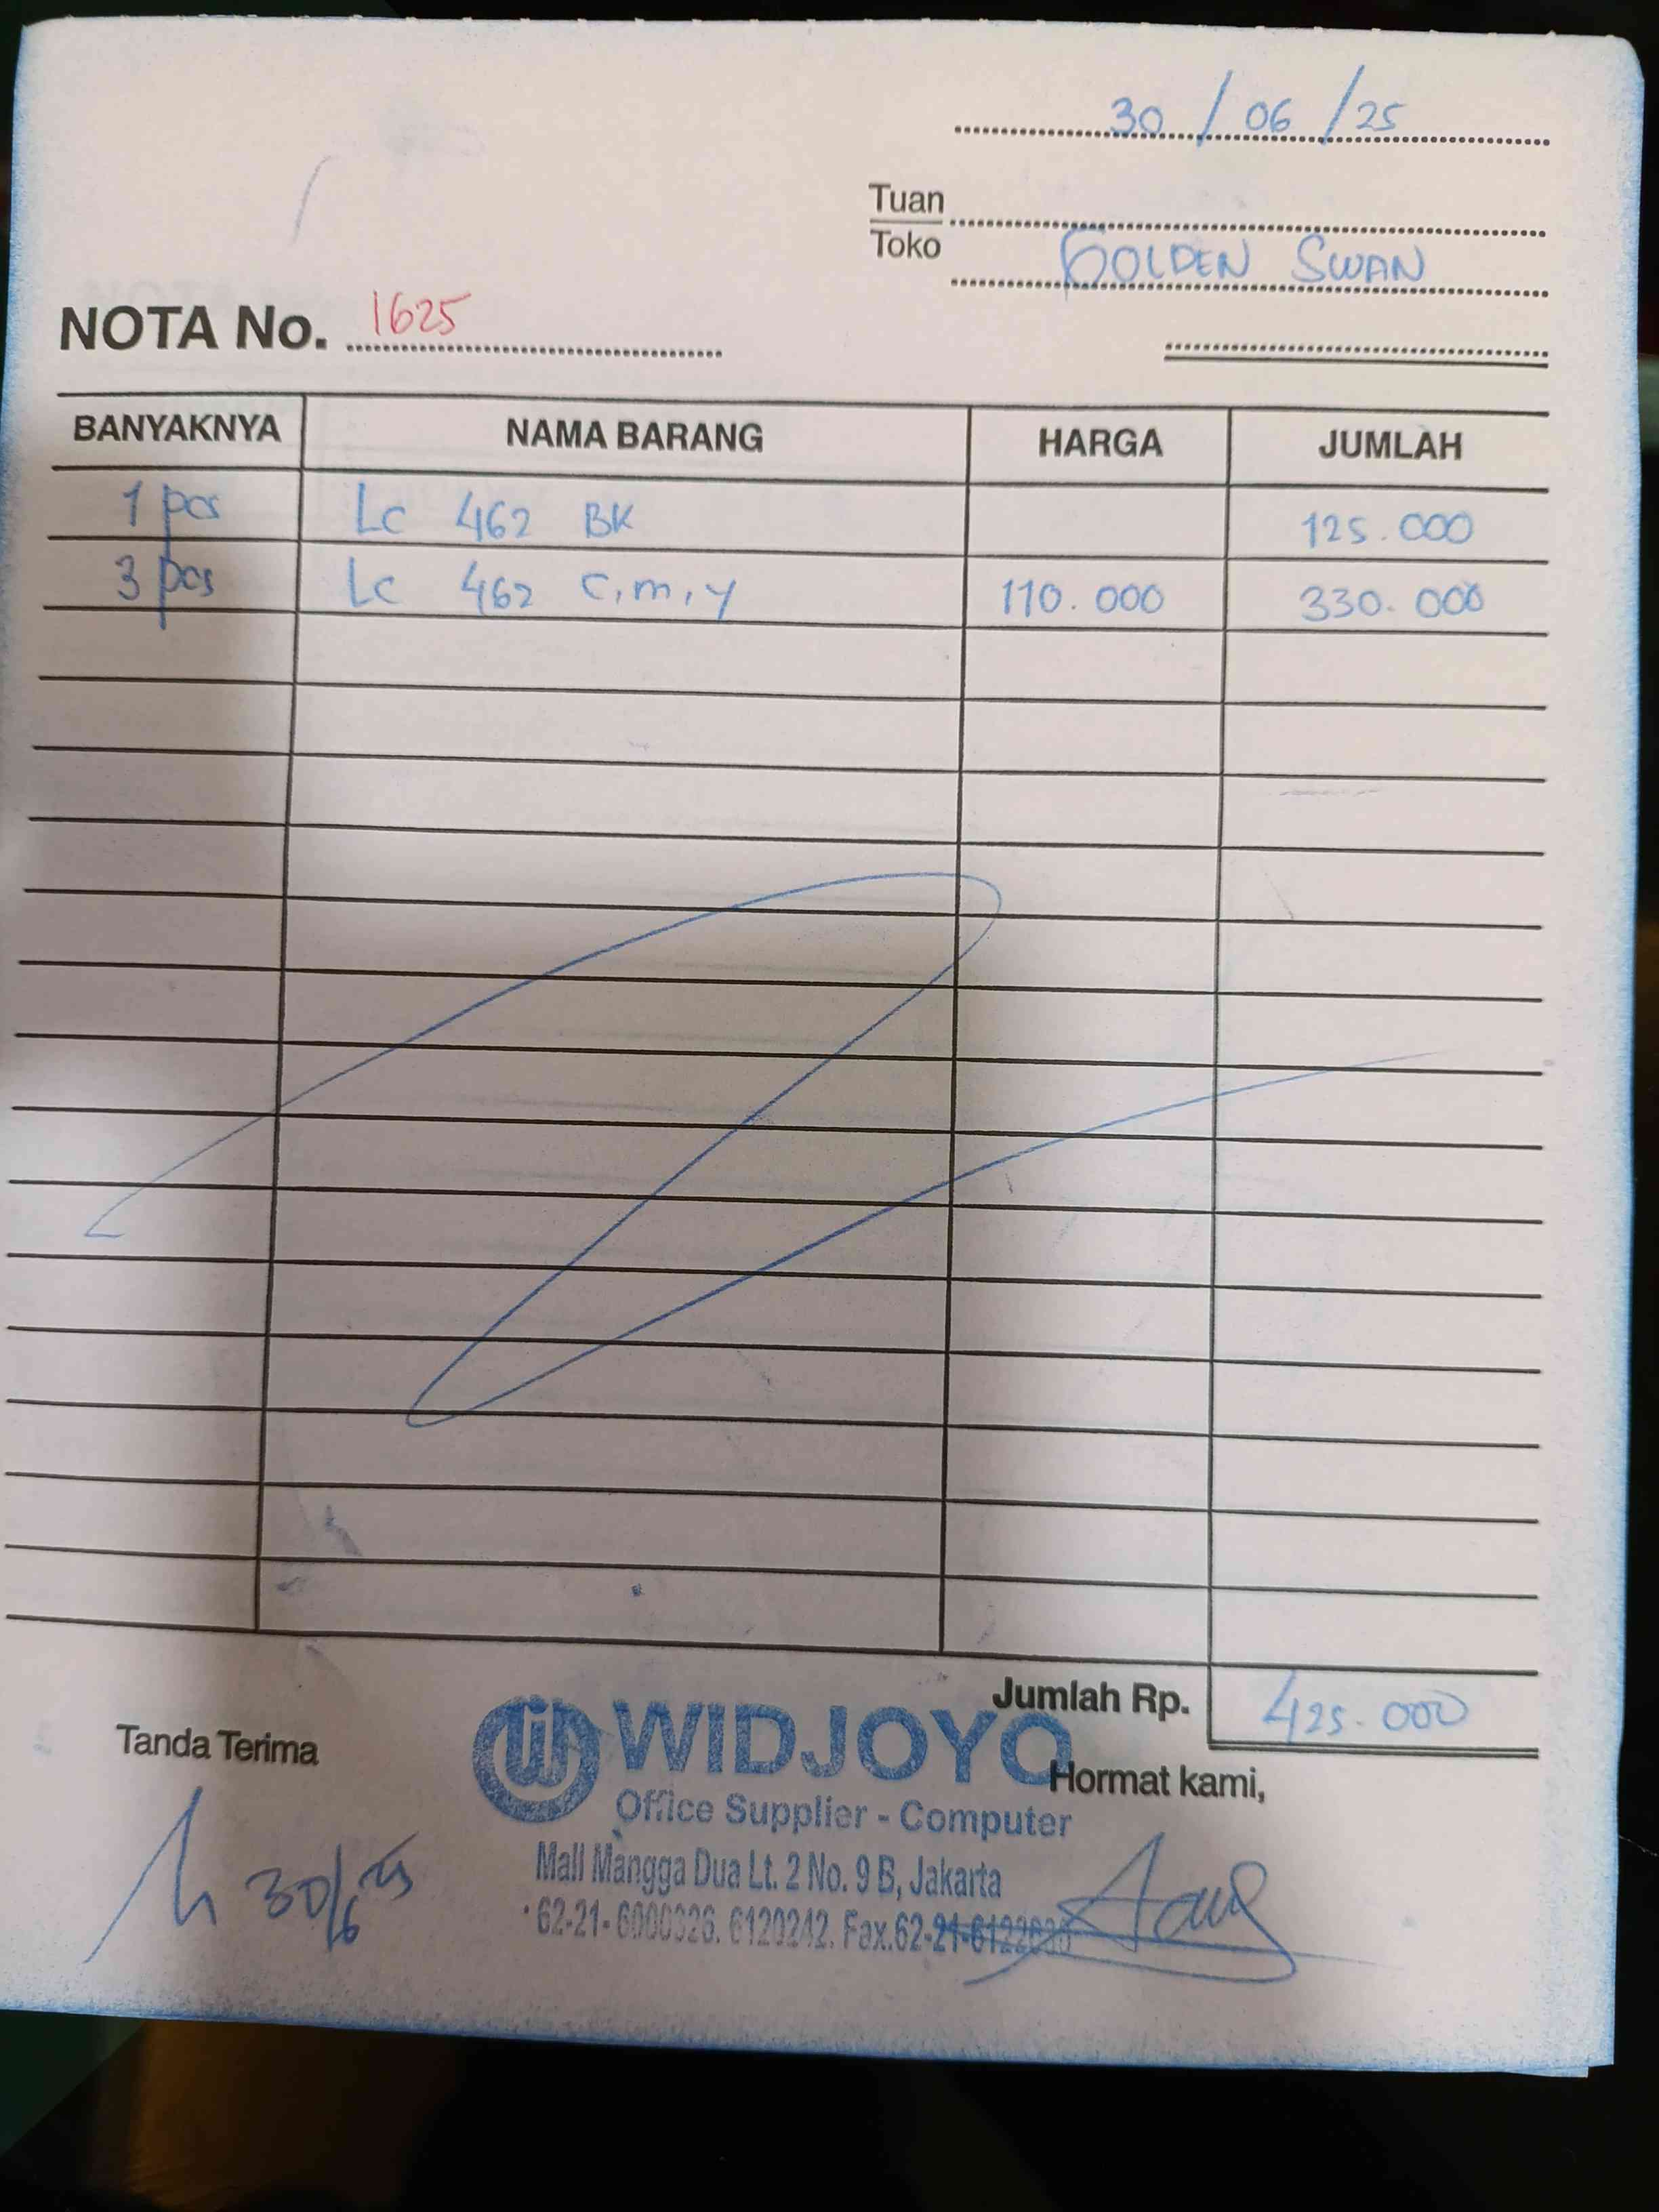 30 / 06 / 25
Tuan
Toko GOLDEN SWAN
NOTA No. 1625
BANYAKNYA NAMA BARANG HARGA JUMLAH
1 pcs Lc 462 BK 125.000
3 pcs Lc 462 C,m,y 110.000 330.000
Jumlah Rp. 425.000
Tanda Terima
Hormat kami,
WIDJOYO
Office Supplier - Computer
Mall Mangga Dua Lt. 2 No. 9 B, Jakarta
62-21- 6000326. 6120242. Fax.62-21-
30/6 25